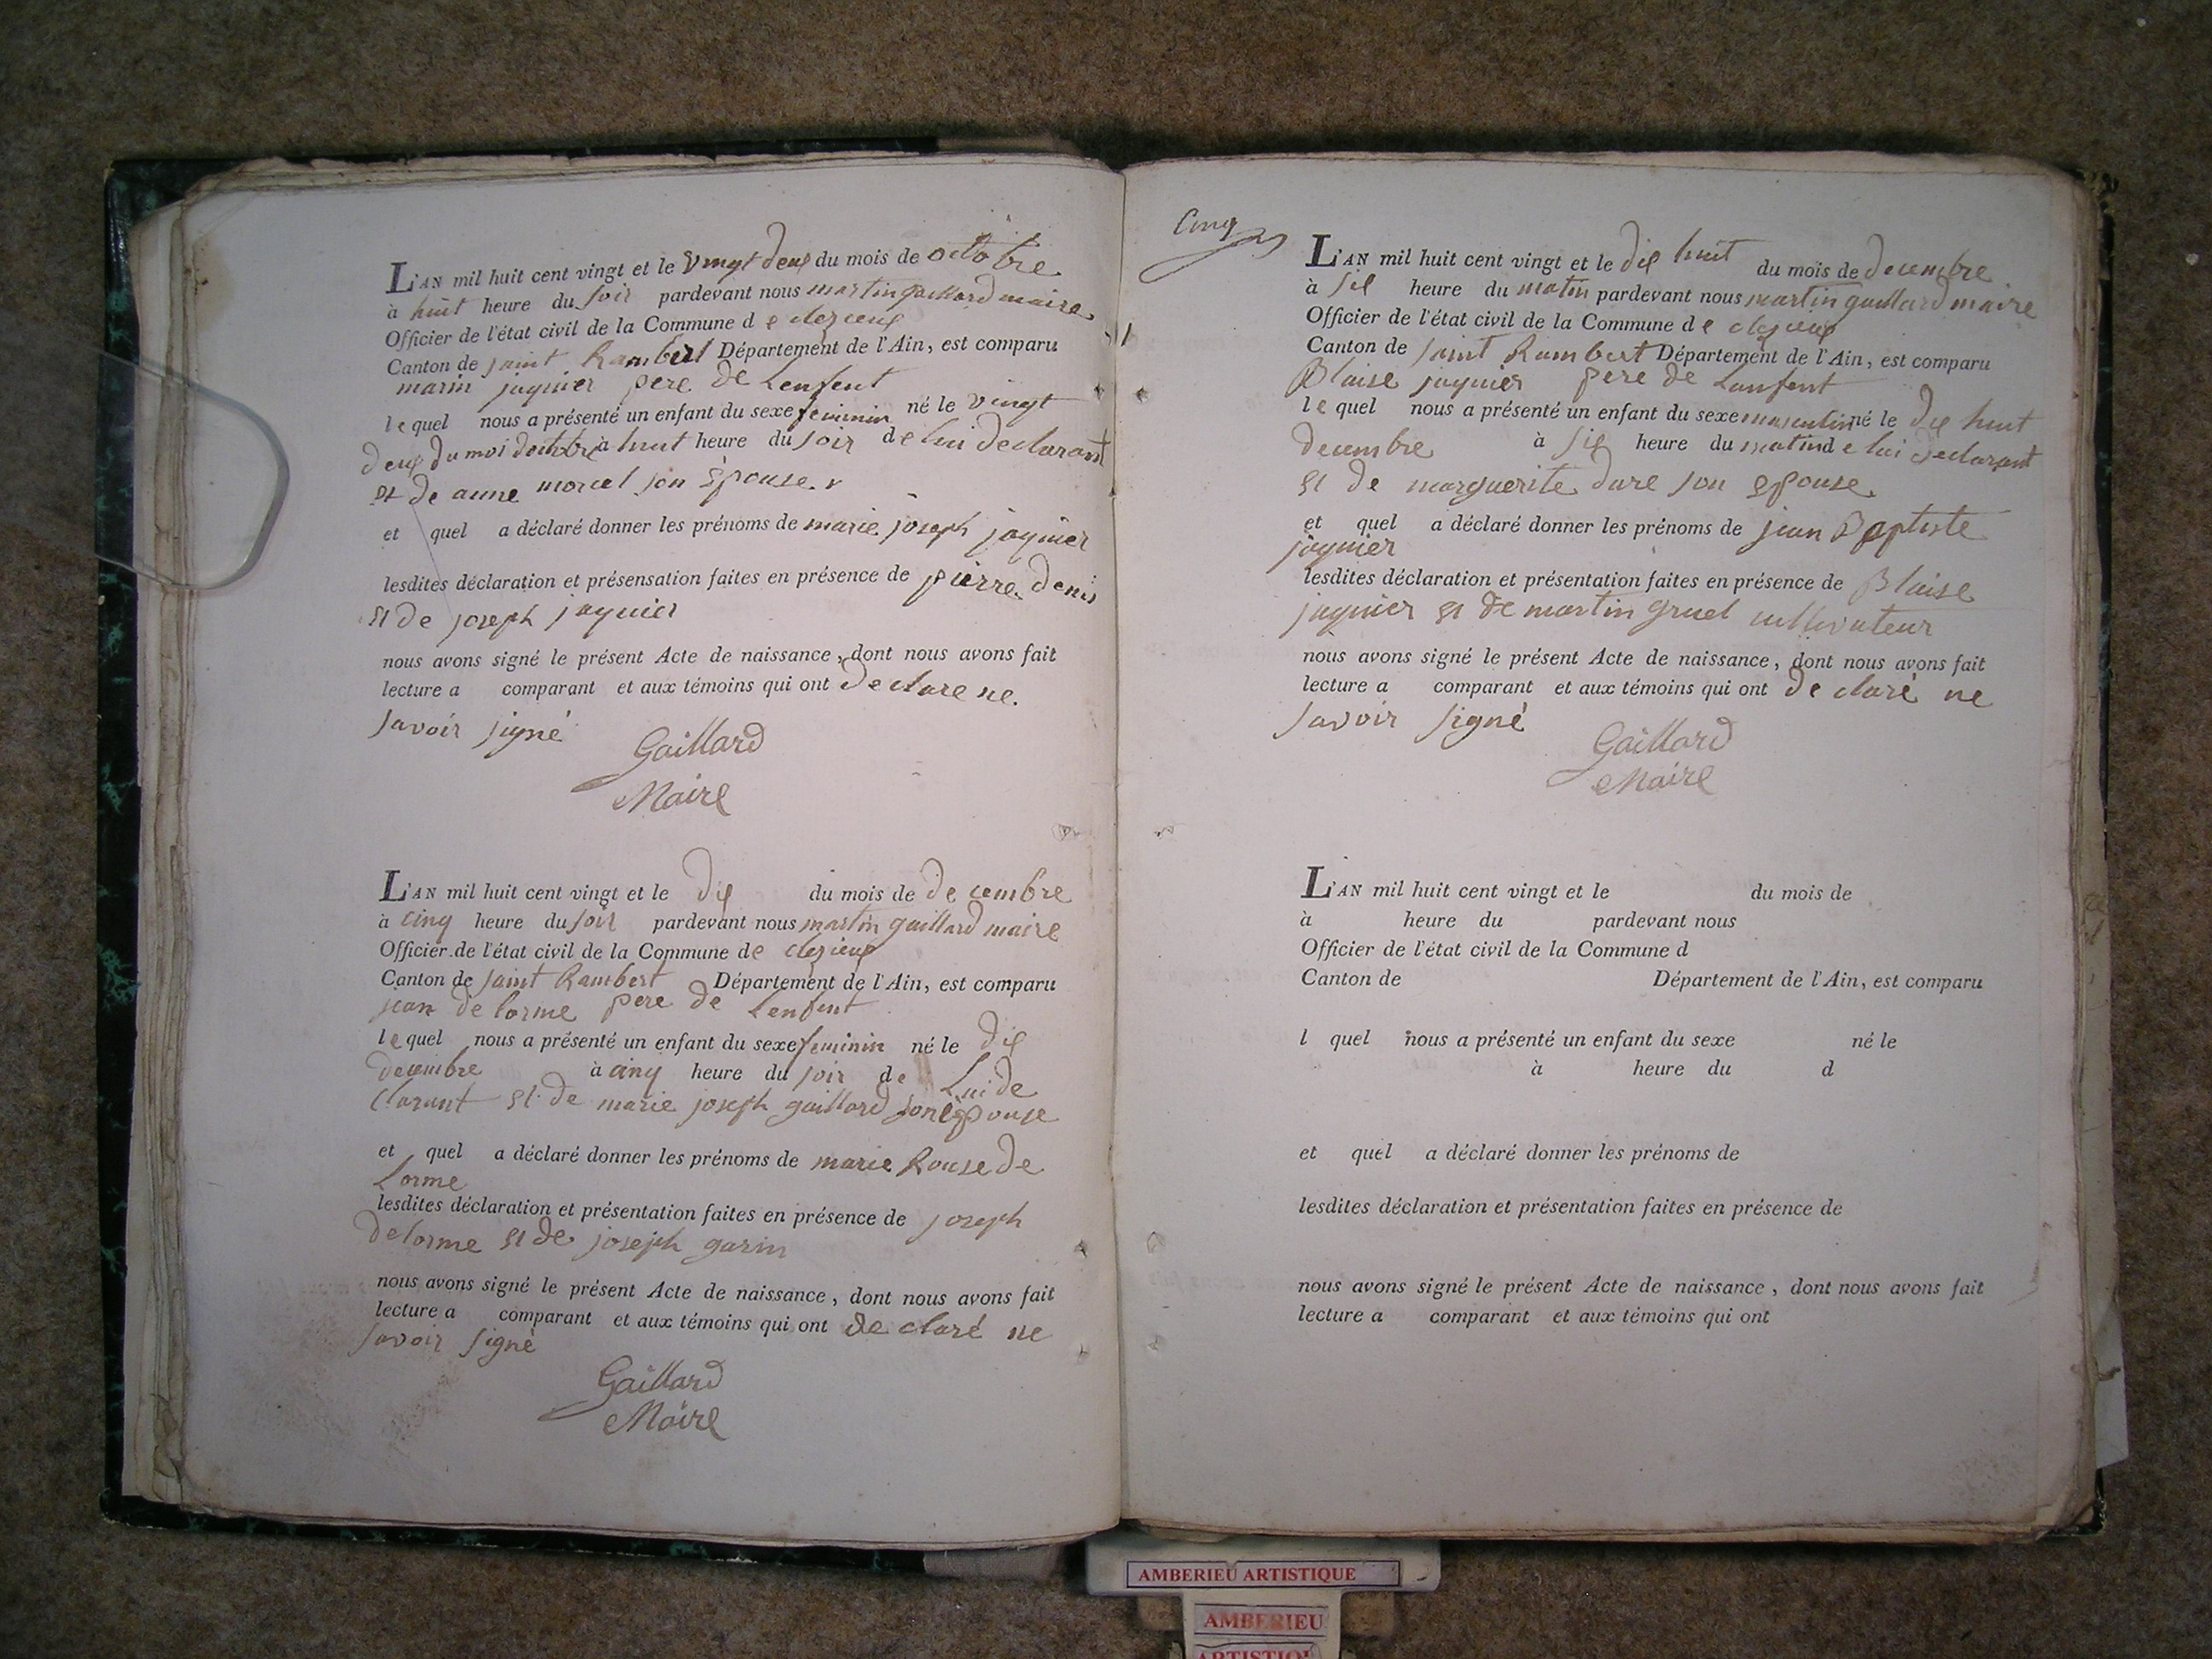 L'AN mil huit cent vingt et le vingt deux du mois de octobre
à huit heure du soir pardevant nous martin gaillard maire
Officier de l'état civil de la Commune de clezieux
Canton de saint Rambert Département de l'Ain, est comparu
marin jaquier pere de Lenfent
lequel nous a présenté un enfant du sexe feminin né le vingt
deux du moi doctobre à huit heure du soir de lui declarant
et de anne morcel son épouse
et quel a déclaré donner les prénoms de marie joseph jaquier
lesdites déclaration et présensation faites en présence de pierre denis
et de joseph jaquier
nous avons signé le présent Acte de naissance, dont nous avons fait
lecture a comparant et aux témoins qui ont declare ne
savoir signé
Gaillard
Maire
L'AN mil huit cent vingt et le dix du mois de decembre
à cinq heure du soir pardevant nous martin gaillard maire
Officier de l'état civil de la Commune de clezieux
Canton de saint Rambert Département de l'Ain, est comparu
jean de lorme pere de Lenfent
lequel nous a présenté un enfant du sexe feminin né le dix
decembre à cinq heure du soir de Lui de
clarant et de marie joseph gaillard son épouse
et quel a déclaré donner les prénoms de marie Rouse de
Lorme
lesdites déclaration et présentation faites en présence de joseph
delorme et de joseph garin
nous avons signé le présent Acte de naissance, dont nous avons fait
lecture a comparant et aux témoins qui ont de claré ne
savoir signé
Gaillard
Maire
Cinq
L'AN mil huit cent vingt et le dix huit du mois de decembre
à six heure du matin pardevant nous martin gaillard maire
Officier de l'état civil de la Commune de clezieux
Canton de saint Rambert Département de l'Ain, est comparu
Blaise jaquier pere de Lanfent
lequel nous a présenté un enfant du sexe masculin né le dix huit
decembre à six heure du matin de lui declarant
et de marguerite dure son epouse
et quel a déclaré donner les prénoms de jean Baptiste
jaquier
lesdites déclaration et présentation faites en présence de Blaise
jaquier et de martin gruel cultivateur
nous avons signé le présent Acte de naissance, dont nous avons fait
lecture a comparant et aux témoins qui ont de claré ne
savoir signé
Gaillard
Maire
L'AN mil huit cent vingt et le du mois de
à heure du pardevant nous
Officier de l'état civil de la Commune d
Canton de Département de l'Ain, est comparu
l quel nous a présenté un enfant du sexe né le
à heure du d
et quel a déclaré donner les prénoms de
lesdites déclaration et présentation faites en présence de
nous avons signé le présent Acte de naissance, dont nous avons fait
lecture a comparant et aux témoins qui ont
AMBERIEU ARTISTIQUE
AMBERIEU
ARTISTIQUE